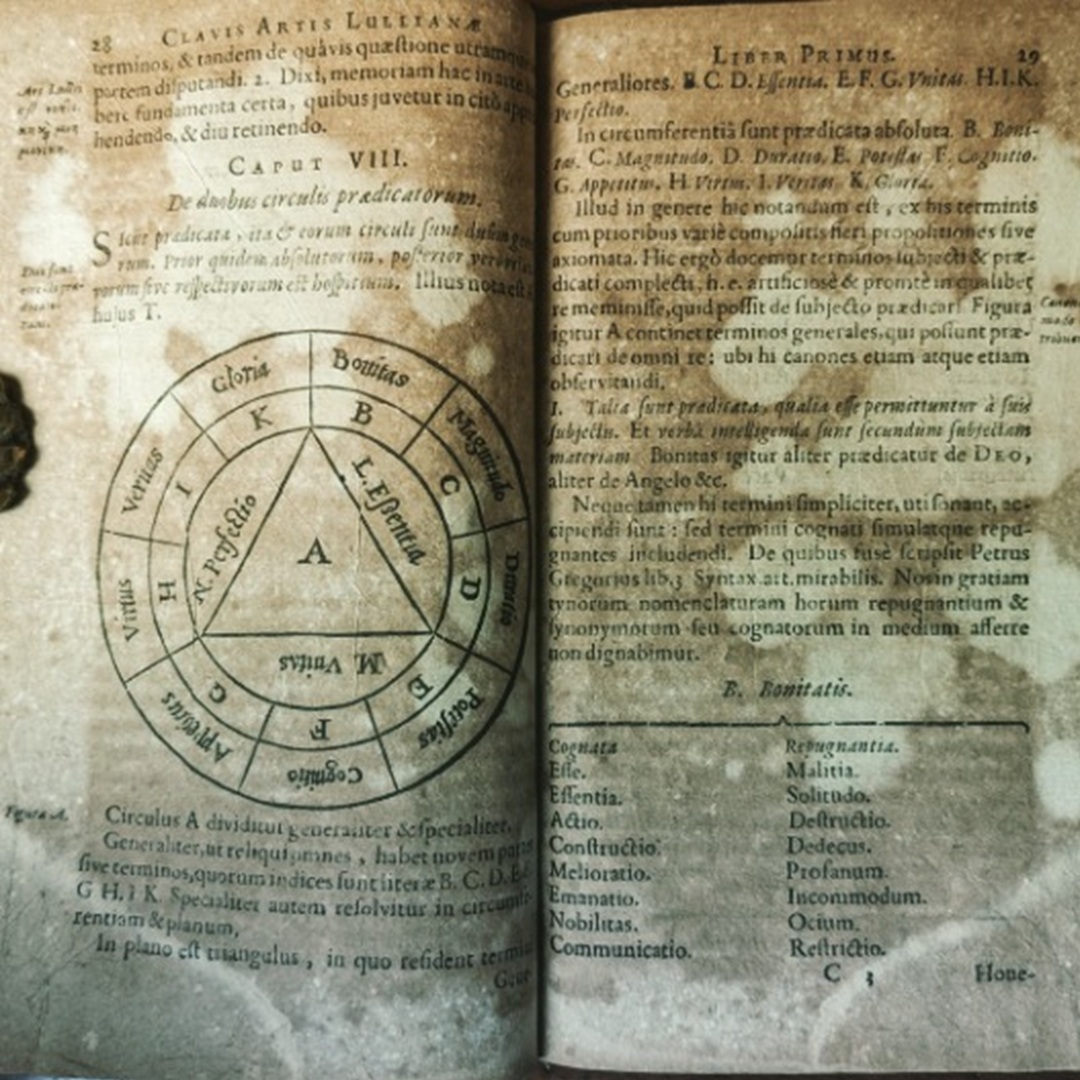 28 CLAVIS ARTIS LULLIANÆ
terminos, & tandem de quâvis quæſtione utramque
partem diſputandi. 2. Dixi, memoriam hac in arte
bere fundamenta certa, quibus juvetur in citò
hendendo, & diu retinendo.
CAPUT VIII.
De duobus circulis prædicatorum.
Sicut prædicata, ita & eorum circuli ſunt
rum. Prior quidem abſolutorum, poſterior
rorum ſive reſpectivorum est hoſpitium. Illius nota eſt
hujus T.
Gloria
Bonitas
Magnitudo
Duratio
Potestas
Cognitio
Appetitus
Virtus
Veritas
K
B
C
D
E
F
G
H
I
N. Perfectio
L. Eſſentia
M. Vnitas
A
Figura A.
Circulus A dividitur generaliter & ſpecialiter.
Generaliter, ut reliqui omnes, habet novem
ſive terminos, quorum indices ſunt literæ B. C. D. E.
G H. I K Specialiter autem reſolvitur in
rentiam & planum,
In plano eſt triangulus, in quo reſident
Gene-
LIBER PRIMUS. 29
Generaliores. B C. D. Eſſentia. E. F. G. Vnitas. H. I. K.
Perfectio.
In circumferentiâ ſunt prædicata abſoluta. B. Boni-
tas. C. Magnitudo. D. Duratio. E. Poteſtas F. Cognitio.
G. Appetitus. H Virtus. I. Veritas K. Gloria.
Illud in genere hîc notandum eſt, ex his terminis
cum prioribus variè compoſitis fieri propoſitiones ſive
axiomata. Hic ergò docemur terminos ſubjecti & præ-
dicati complecti, h. e. artificiosè & promtè in qualibet
re meminiſſe, quid poſſit de ſubjecto prædicari Figura
igitur A continet terminos generales, qui poſſunt præ-
dicari de omni re: ubi hi canones etiam atque etiam
obſervandi.
1. Talia ſunt prædicata, qualia eſſe permittuntur à ſuis
ſubjectis. Et verba intelligenda ſunt ſecundum ſubjectam
materiam Bonitas igitur aliter prædicatur de DEO,
aliter de Angelo &c.
Neque tamen hi termini ſimpliciter, uti ſonant, ac-
cipiendi ſunt: ſed termini cognati ſimulatque repu-
gnantes includendi. De quibus fusè ſcripſit Petrus
Gregorius lib. 3 Syntax. art. mirabilis. Nos in gratiam
tyronum nomenclaturam horum repugnantium &
ſynonymorum ſeu cognatorum in medium afferre
non dignabimur.
B. Bonitatis.
Cognata Repugnantia.
Eſſe. Malitia.
Eſſentia. Solitudo.
Actio. Deſtructio.
Conſtructio. Dedecus.
Melioratio. Profanum.
Emanatio. Incommodum.
Nobilitas. Ocium.
Communicatio. Reſtrictio.
C 3 Hone-